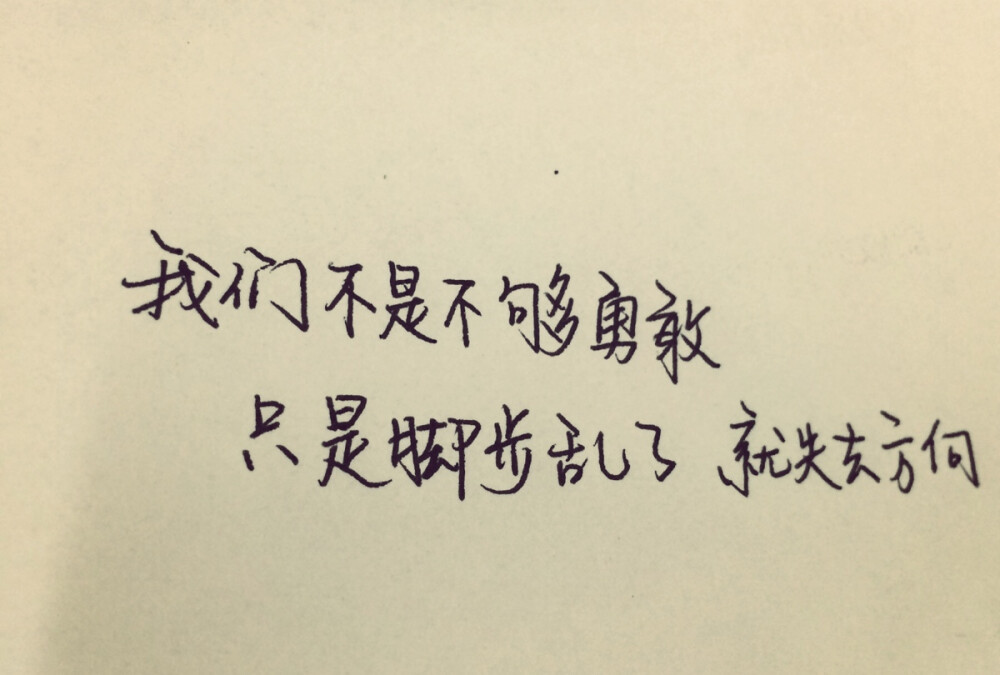 我们不是不够勇敢
只是脚步乱了 就失去方向